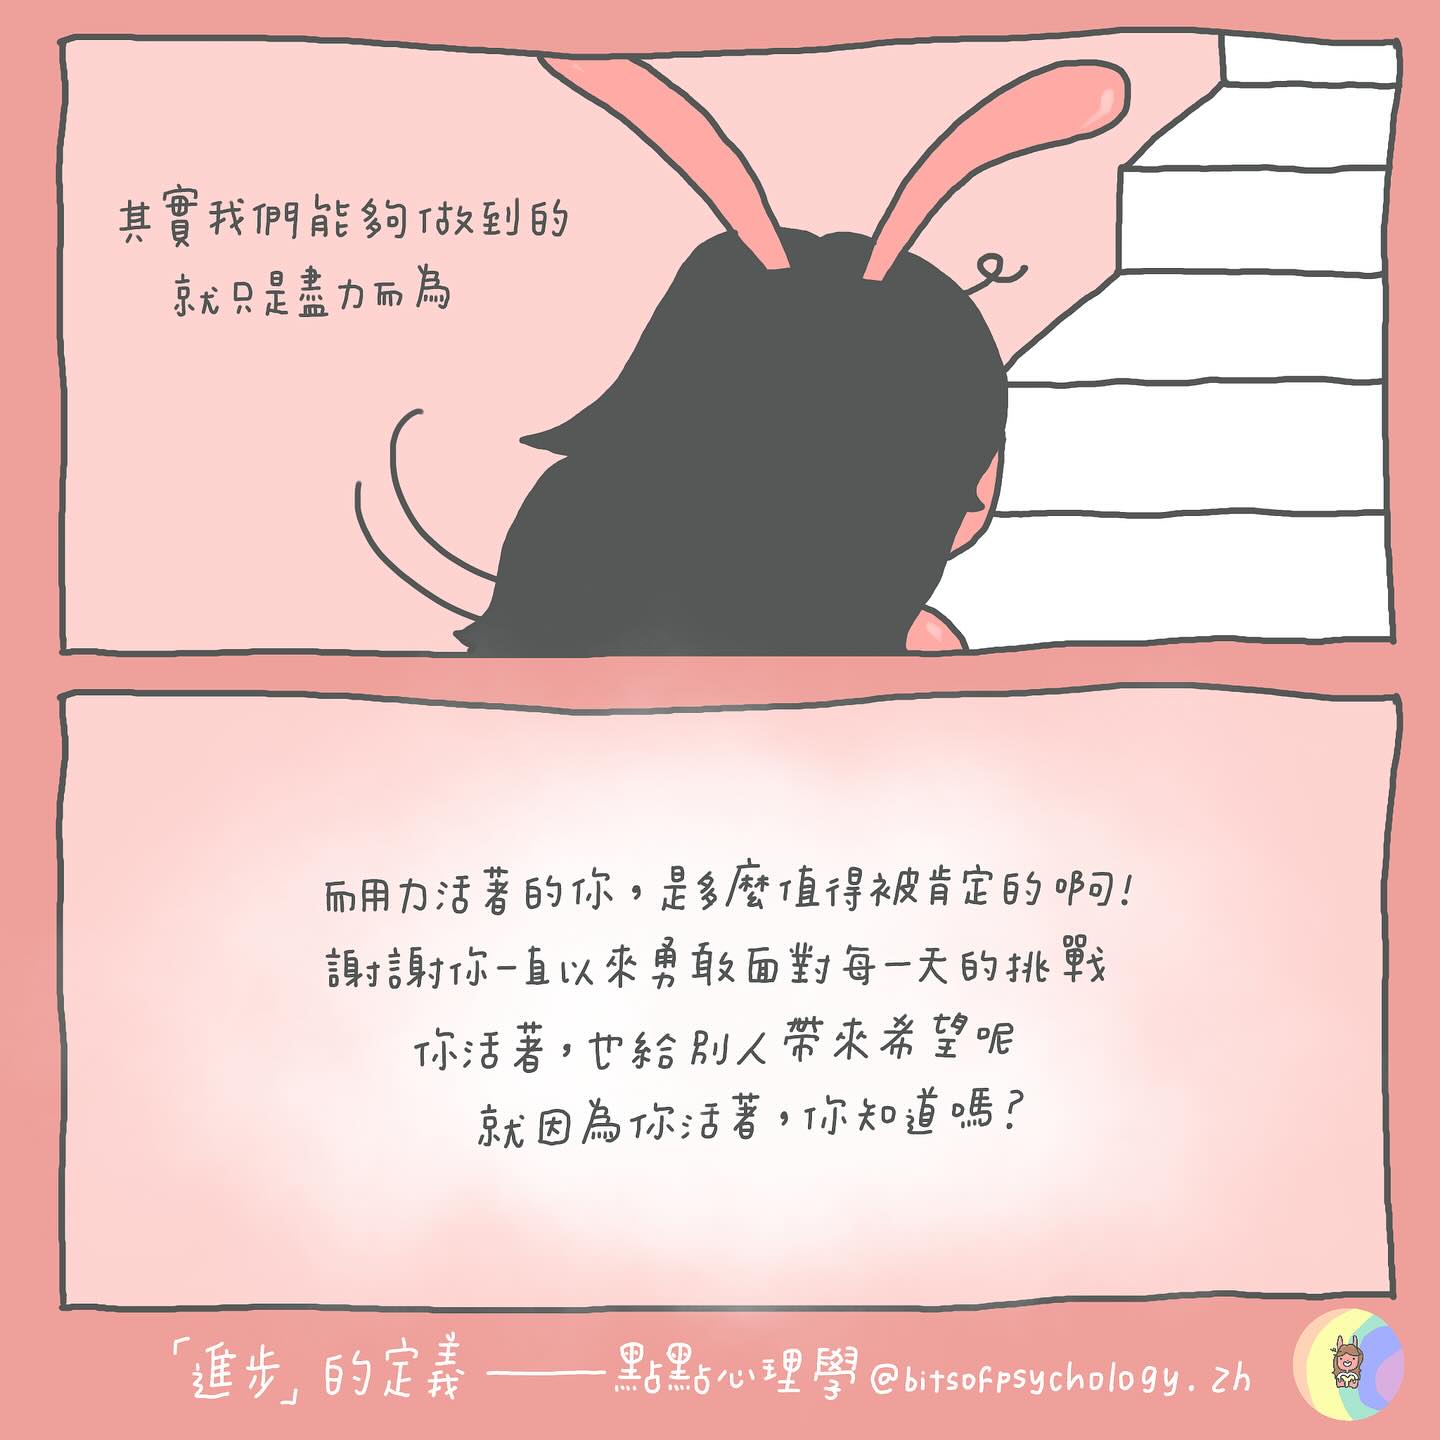 其實我們能夠做到的
就只是盡力而為
而用力活著的你，是多麼值得被肯定的啊!
謝謝你一直以來勇敢面對每一天的挑戰
你活著，也給別人帶來希望呢
就因為你活著，你知道嗎?
「進步」的定義——點點心理學@bitsofpsychology.zh